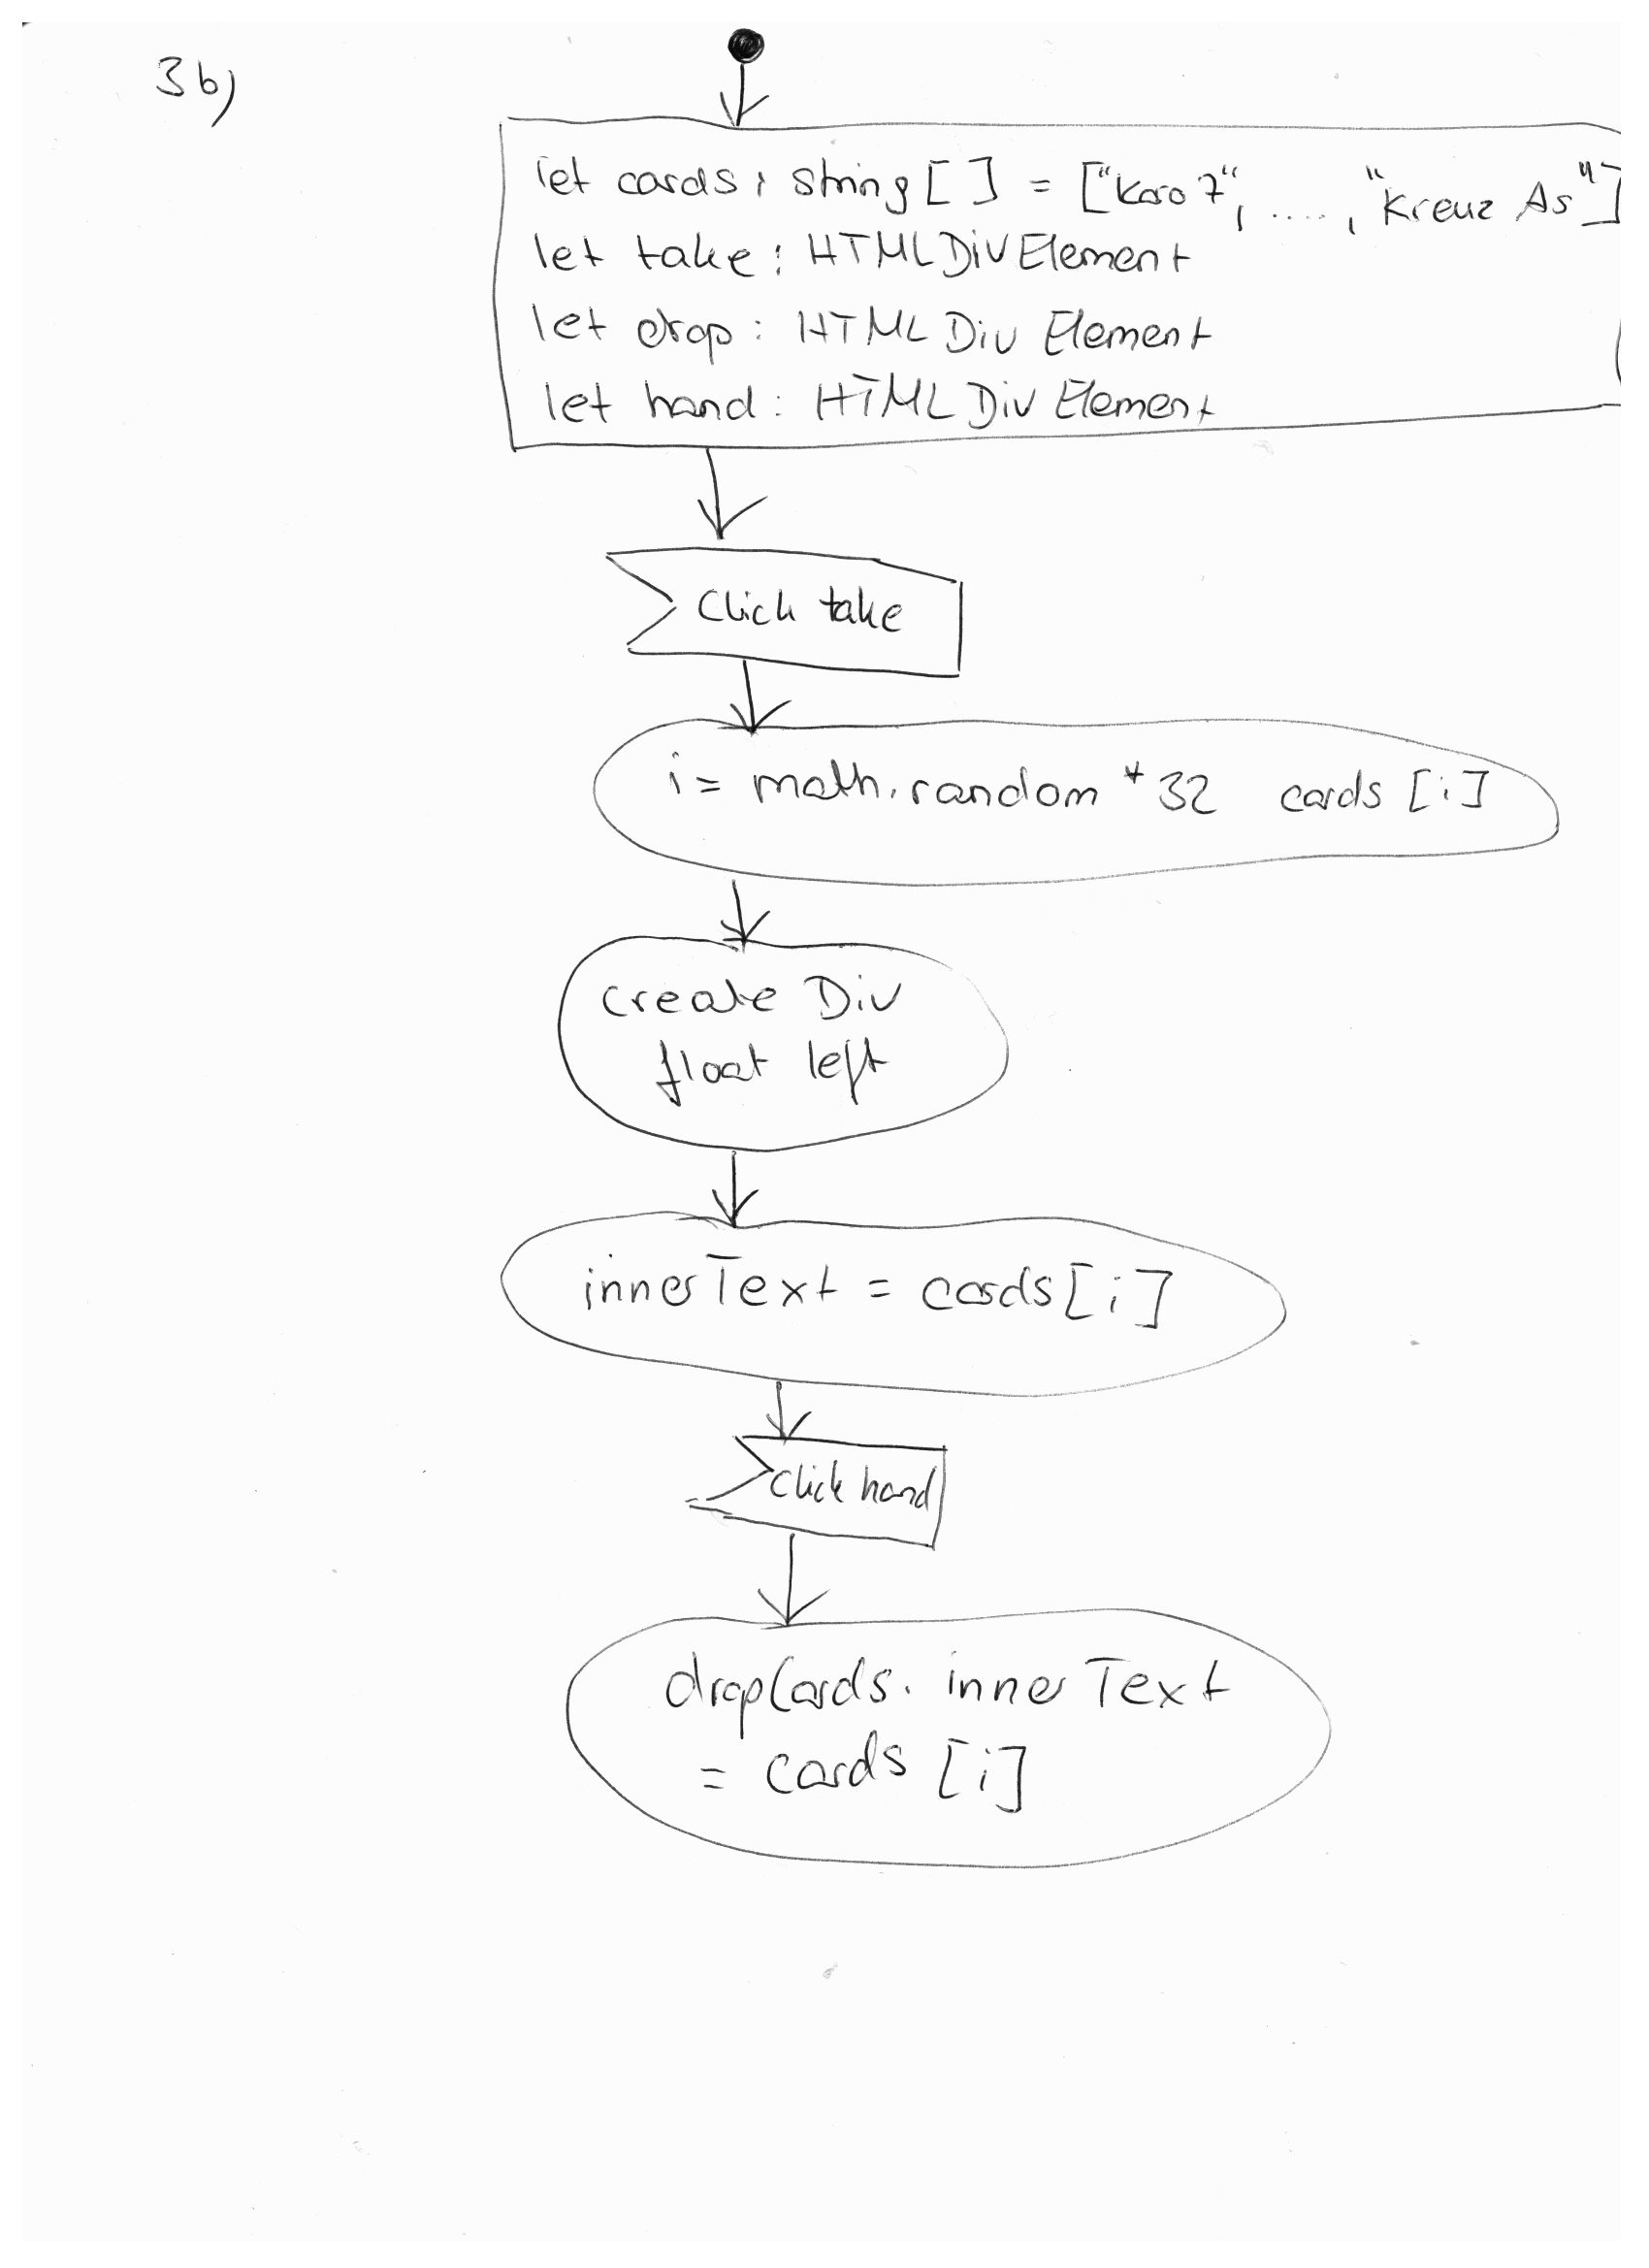 3b)
let cards: string[] = ["Karo 7", ....., "Kreuz As"]
let take: HTMLDivElement
let drop: HTML Div Element
let hand: HTML Div Element
Click take
i = math.random * 32 cards [i]
create Div
float left
innerText = cards[i]
Click hand
dropCards. innerText
= cards [i]